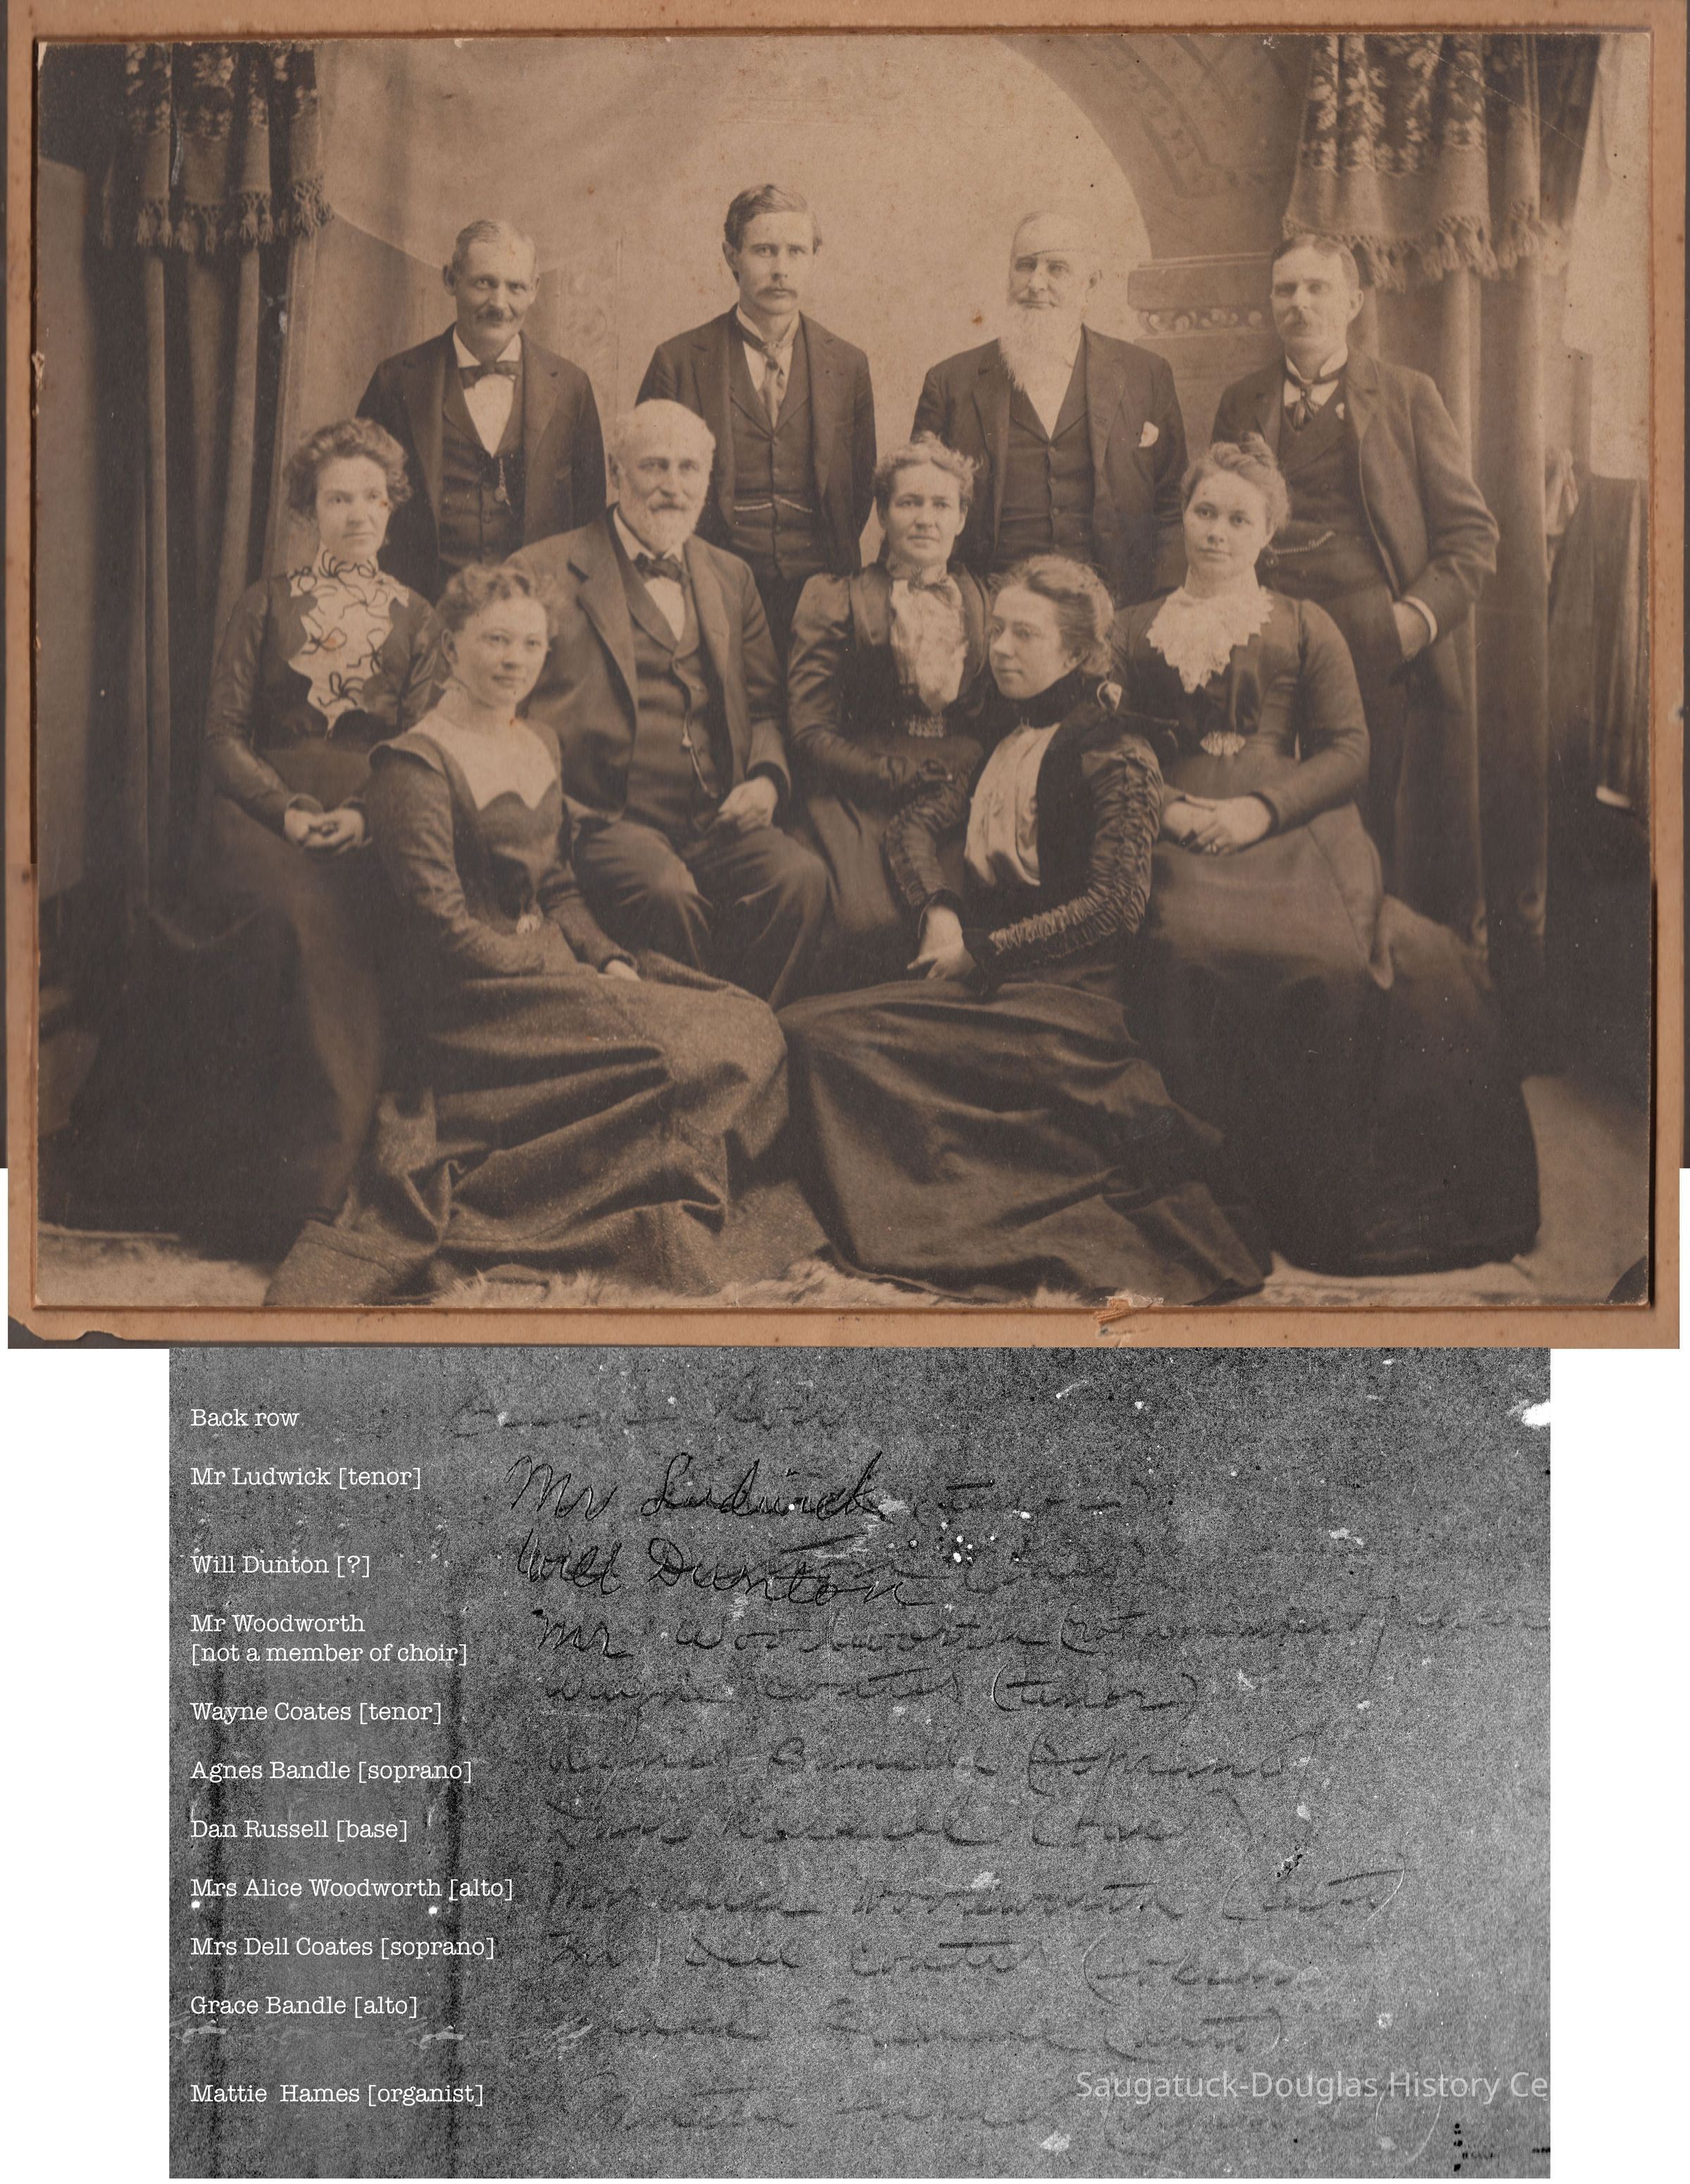 Back row
Mr Ludwick [tenor]
Mr Ludwick
Will Dunton [?]
Will Dunton
Mr Woodworth
[not a member of choir]
Mr Woodworth
Wayne Coates [tenor]
Wayne Coates (tenor)
Agnes Bandle [soprano]
Agnes Bandle (soprano)
Dan Russell [base]
Dan Russell (base)
Mrs Alice Woodworth [alto]
Mrs Alice Woodworth (alto)
Mrs Dell Coates [soprano]
Mrs Dell Coates
Grace Bandle [alto]
Grace Bandle (alto)
Mattie Hames [organist]
Saugatuck-Douglas History Ce